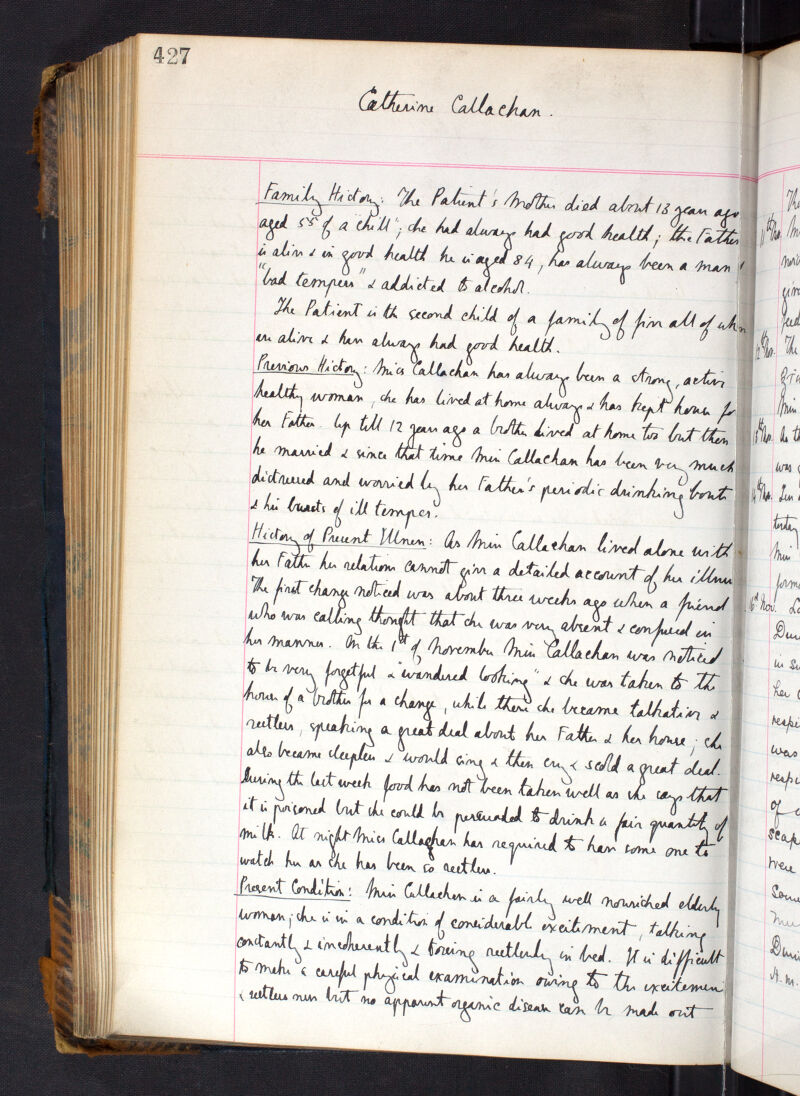 427
Catherine Callachan.
Family History: The Patient's Mother died about 13 years ago
aged 55 of a "chill"; she had always had good health; the Father
is alive & in good health he is aged 84, has always been a man
"bad tempers" & addicted to alcohol.
The Patient is the second child of a family of five all of whom
are alive & have always had good health.
Previous History: Miss Callachan has always been a strong, active
healthy woman, she has lived at home always & has kept house for
her Father. Up till 12 years ago a brother lived at home too but then
he married & since that time Miss Callachan has been very much
distressed and worried by her Father's periodic drinking bouts
& his bursts of ill temper.
History of Present Illness: As Miss Callachan lived alone with
her Father her relations cannot give a detailed account of her illness
The first change noticed was about three weeks ago when a friend
who was calling thought that she was very absent & confused in
her manner. On the 1st of November Miss Callachan was noticed
to be very forgetful & "wandered looking" & she was taken to the
house of a brother for a change, while there she became talkative &
restless, speaking a great deal about her Father & her house; she
also became sleepless & would sing & then cry & scold a great deal.
During the last week food has not been taken well as she says that
it is poisoned but she could be persuaded to drink a fair quantity of
milk. At night Miss Callaghan has required to have some one to
watch her as she has been so restless.
Present Condition: Miss Callachan is a fairly well nourished elderly
woman; she is in a condition of considerable excitement, talking
constantly & incoherently & tossing restlessly in bed. It is difficult
to make a careful physical examination owing to the excitement
& restlessness but no apparent organic disease can be made out